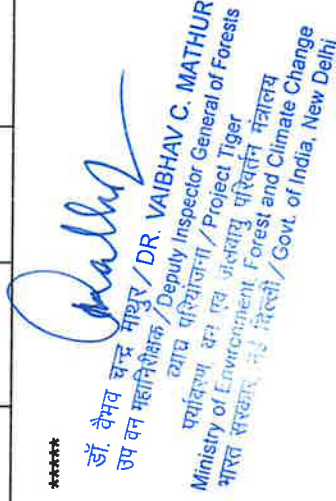 *****
डॉ. वैभव चन्द्र माथुर/DR. VAIBHAV C. MATHUR
उप वन महानिरीक्षक/Deputy Inspector General of Forests
व्याघ्र परियोजना/Project Tiger
पर्यावरण, वन एवं जलवायु परिवर्तन मंत्रालय
Ministry of Environment, Forest and Climate Change
भारत सरकार, नई दिल्ली/Govt. of India, New Delhi